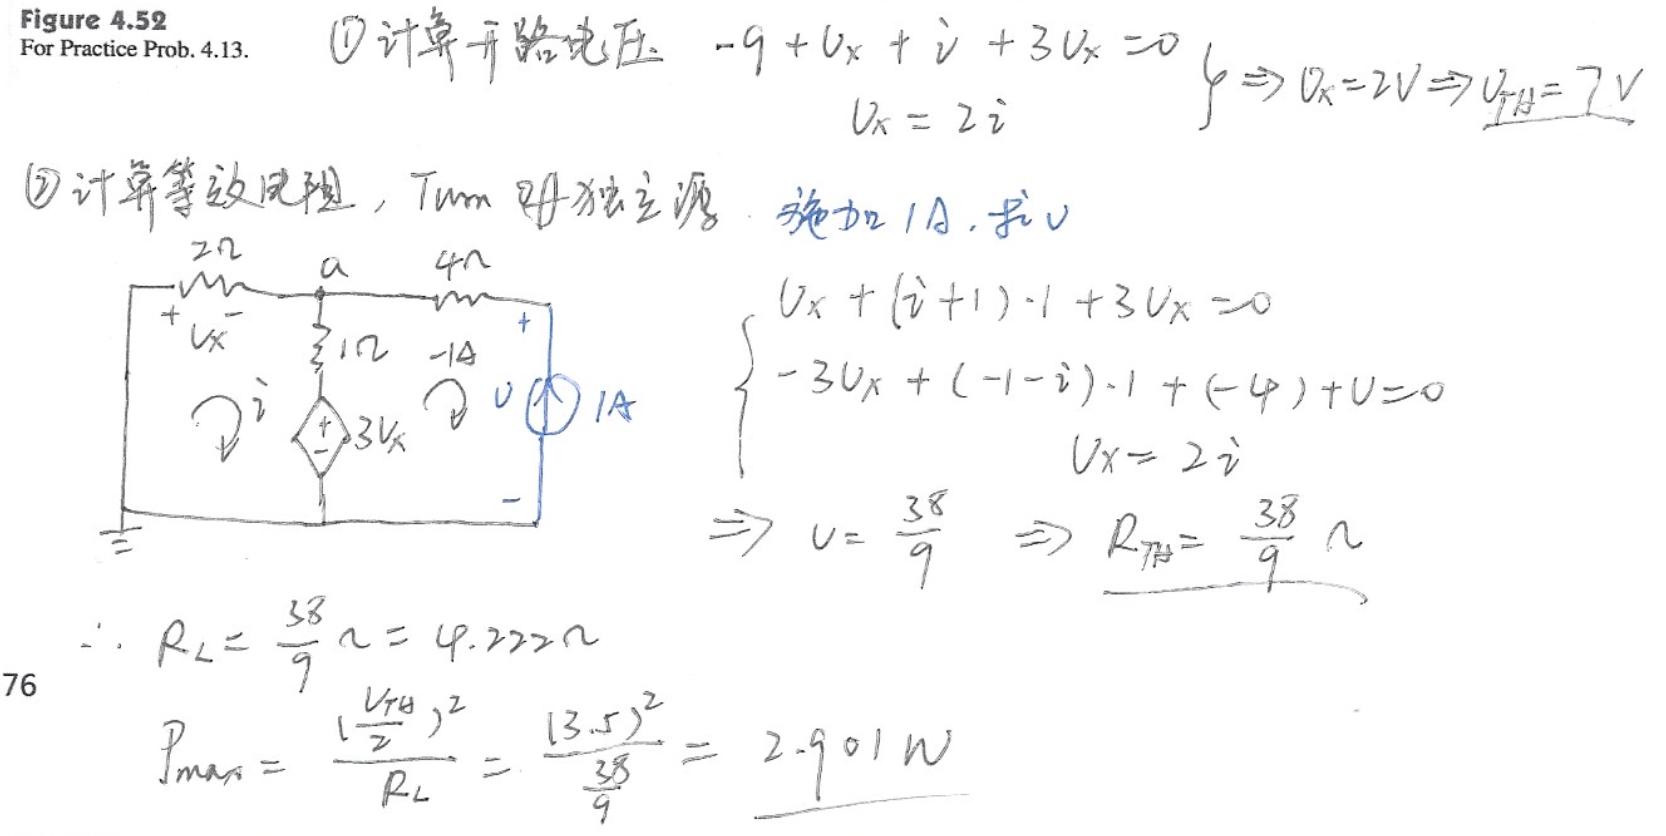 Figure 4.52
For Practice Prob. 4.13.
① 计算开路电压 -9 + Vx + i + 3Vx = 0
Vx = 2i
} ⇒ Vx = 2V ⇒ VTH = 7V
② 计算等效电阻, Turn 独立源. 施加 1A, 求 v
2Ω a 4Ω
+ Vx -
1Ω -1A
i + - 3Vx
+ v - 1A
Vx + (i+1)·1 + 3Vx = 0
-3Vx + (-1-i)·1 + (-4) + v = 0
Vx = 2i
⇒ v = 38/9 ⇒ RTH = 38/9 Ω
∴ RL = 38/9 Ω = 4.222Ω
76
Pmax = (VTH/2)² / RL = (3.5)² / (38/9) = 2.901 W